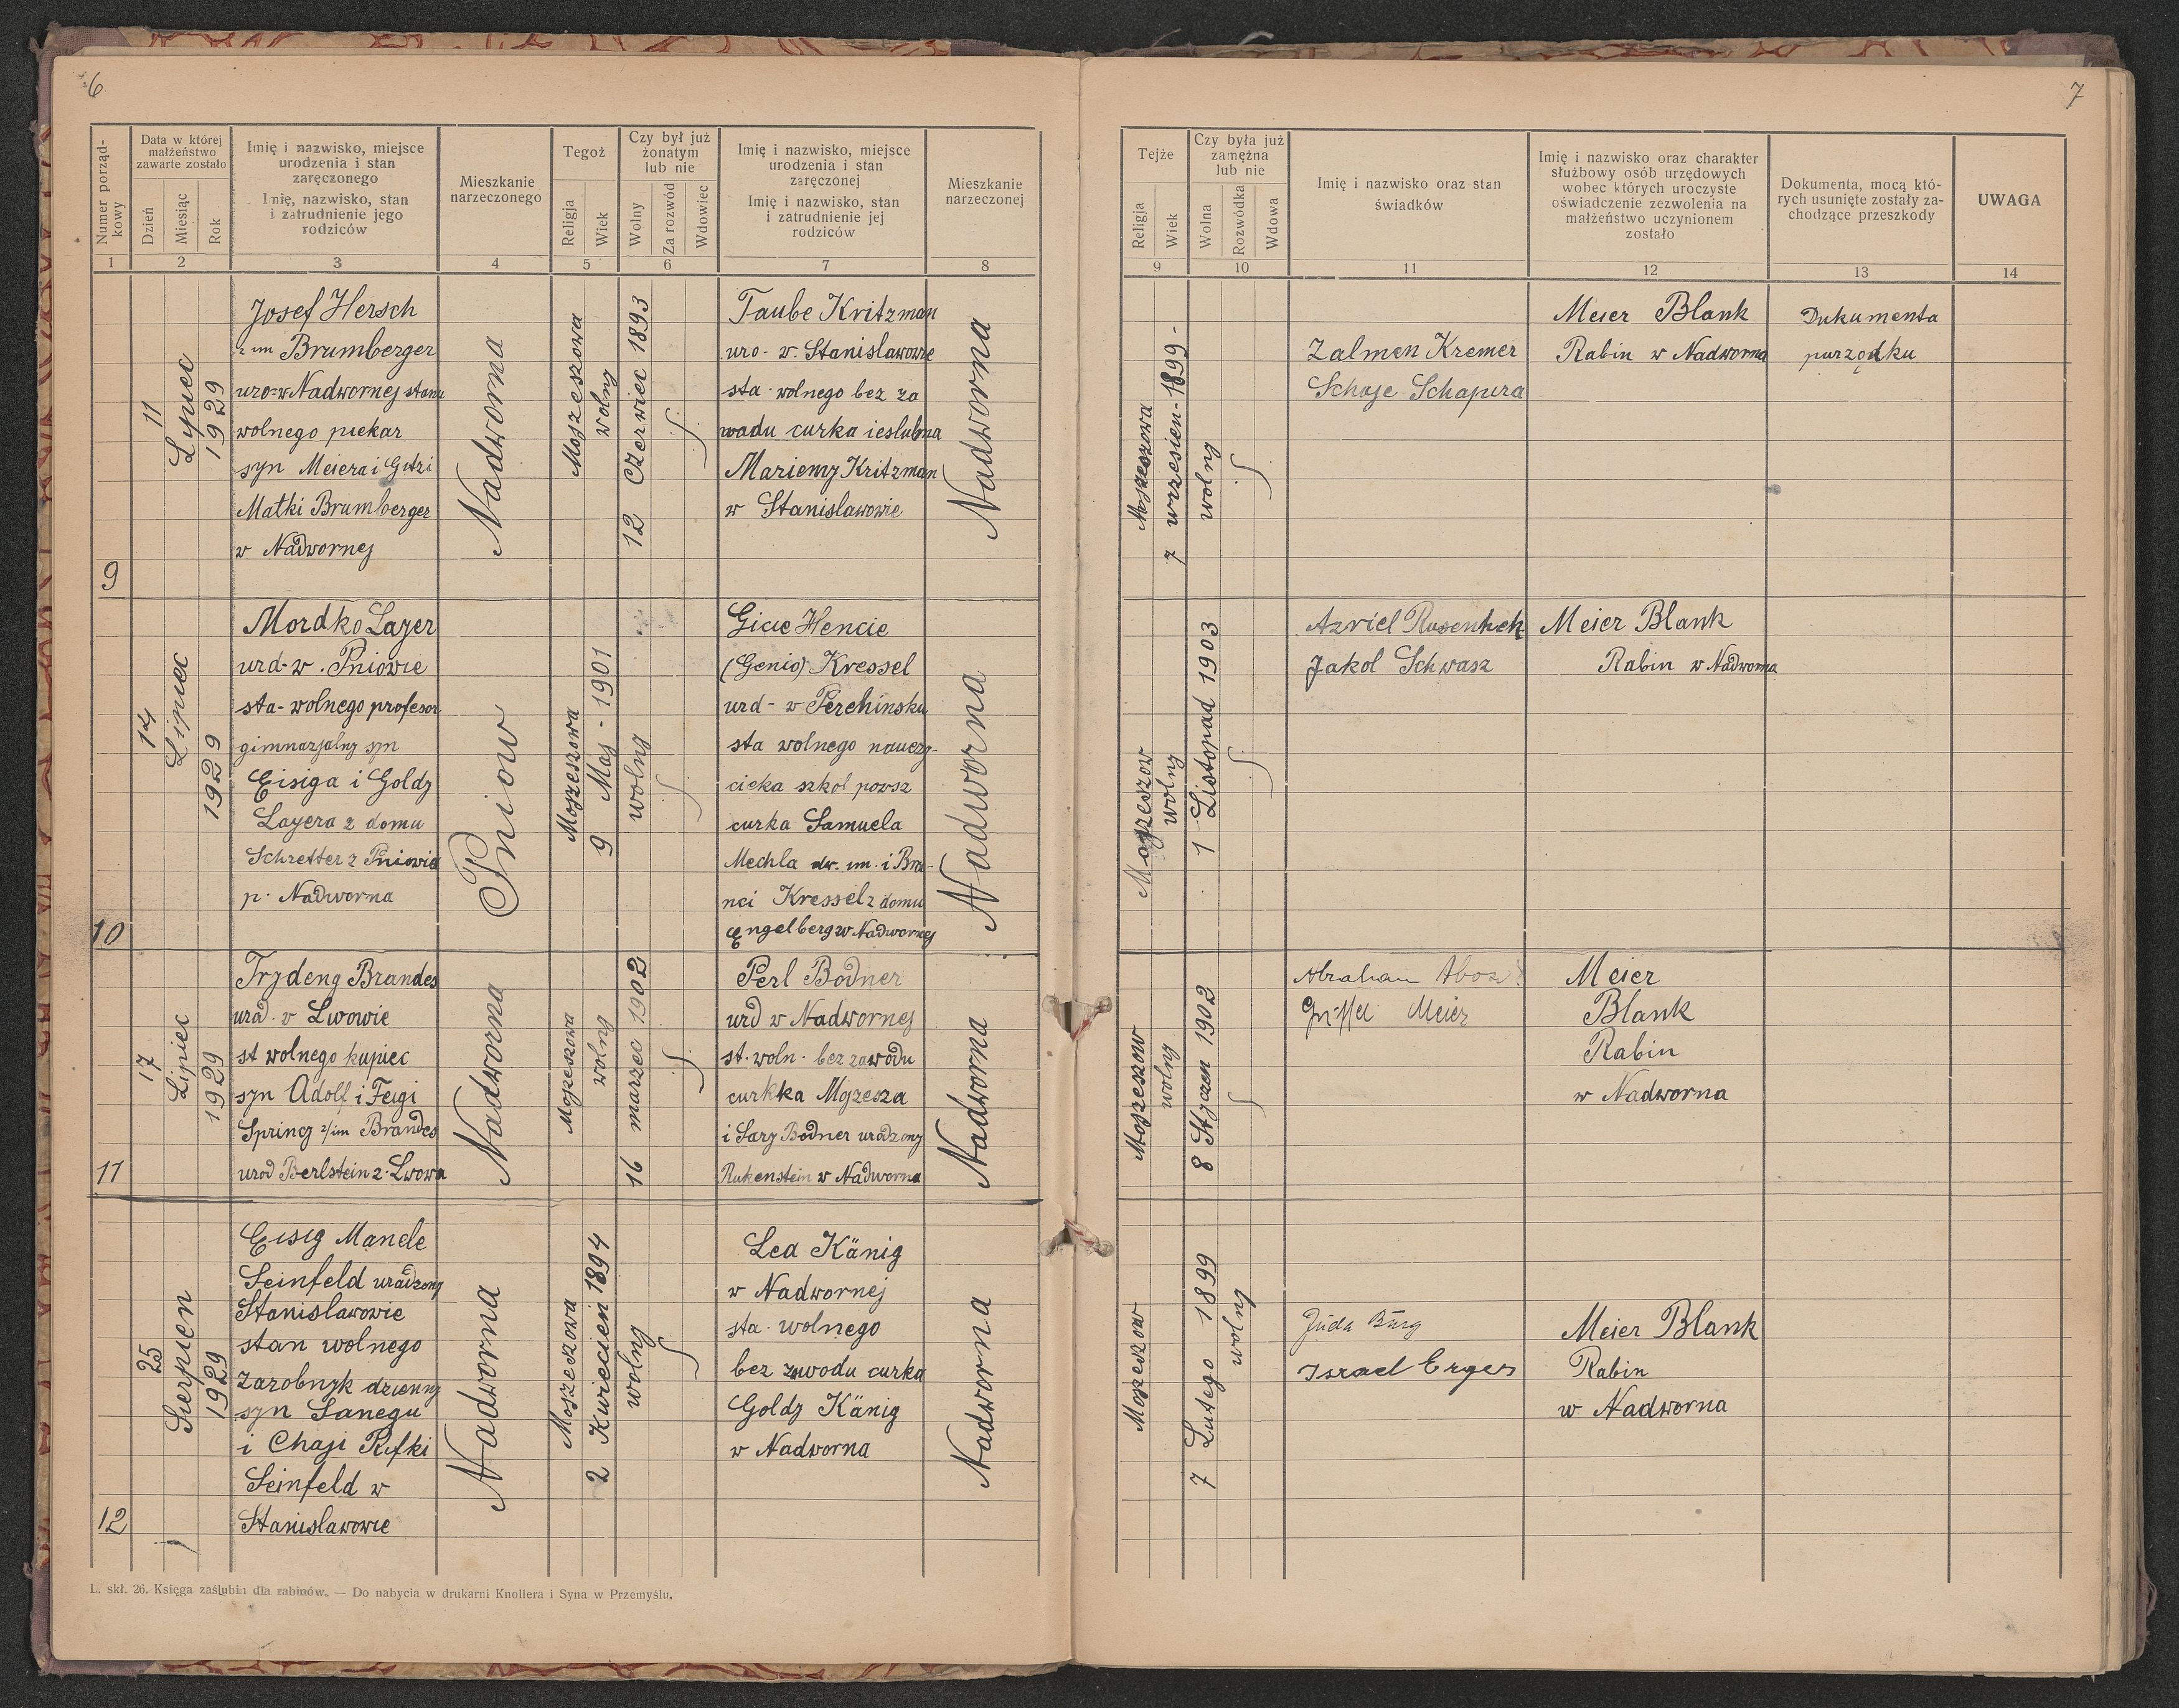 6
Numer porządkowy
Data w której małżeństwo zawarte zostało
Dzień
Miesiąc
Rok
Imię i nazwisko, miejsce urodzenia i stan zaręczonego
Imię, nazwisko, stan i zatrudnienie jego rodziców
Mieszkanie narzeczonego
Tegoż
Religja
Wiek
Czy był już żonatym lub nie
Wolny
Za rozwód
Wdowiec
Imię i nazwisko, miejsce urodzenia i stan zaręczonej
Imię, nazwisko, stan i zatrudnienie jej rodziców
Mieszkanie narzeczonej
1 2 3 4 5 6 7 8
9
11
Lypiec
1929
Josef Hersch
z im Brumberger
uro=w Nadwornej stanu
wolnego piekar
syn Meiera i Gitzi
Matki Brumberger
w Nadwornej
Nadworna
Mojzeszowa
wolny
12 Czerwiec 1893
Taube Kritzman
uro - w. Stanislawowie
sta · wolnego bez za
wadu curka ieslubna
Mariemy Kritzman
w Stanislawowie
Nadworna
10
14
Lipiec
1929
Mordko Lazer
urd - w . Pniowie
sta - wolnego profesor
gimnazjalny syn
Eisiga i Goldy
Layera z domu
Schretter z Pniowie
p · Nadworna
Pniow
Mojzeszowa
9 Maj - 1901
wolny
Gicie Hencie
(Genio) Kressel
urd - w Perehinsku
sta wolnego nauczy-
cielka szkol powsz
curka Samuela
Mechla dw. im. i Bra-
nci Kressel z domu
Engelberg w Nadwornej
Nadworna
11
17
Lipiec
1929
Frydeng Brandes
urd · w Lwowie
st wolnego kupiec
syn Adolf i Feigi
Sprincy z/im Brandes
urod Berlstein z · Lwowa
Nadworna
Mojzeszowa
wolny
16 marzec 1902
Perl Bodner
urd w Nadwornej
st. woln · bez zawodu
curkka Mojzesza
i Sary Bodner uradzony
Rukenstein w Nadworna
Nadworna
12
25
Sierpien
1929
Eisig Mandle
Seinfeld uradzony
Stanislawowie
stan wolnego
zarobnyk dzienny
syn Sanegu
i Chaji Rifki
Seinfeld w
Stanislawowie
Nadworna
Mojzeszowa
2 Kwiecien 1894
wolny
Lea Känig
w Nadwornej
sta · wolnego
bez zawodu curka
Goldy Känig
w Nadworna
Nadworna
L. skł. 26. Księga zaślubin dla rabinów. — Do nabycia w drukarni Knollera i Syna w Przemyślu.
7
Tejże
Religja
Wiek
Czy była już zamężna lub nie
Wolna
Rozwódka
Wdowa
Imię i nazwisko oraz stan świadków
Imię i nazwisko oraz charakter służbowy osób urzędowych wobec których uroczyste oświadczenie zezwolenia na małżeństwo uczynionem zostało
Dokumenta, mocą których usunięte zostały zachodzące przeszkody
UWAGA
9 10 11 12 13 14
Mojzeszowa
7 wrzesien - 1899 -
wolny
Zalmen Kremer
Schaje Schapira
Meier Blank
Rabin w Nadworna
Dukumenta
purządku
Mojzeszow
wolny
1 Listopad 1903
Azriel Rusenhek
Jakol Schwasz
Meier Blank
Rabin w Nadworna
Mojzeszow
wolny
8 Styczen 1902
Abraham
Meier
Meier
Blank
Rabin
w Nadworna
Mojzeszow
7 Lutego 1899
wolny
Juda Burg
Israel Erges
Meier Blank
Rabin
w Nadworna